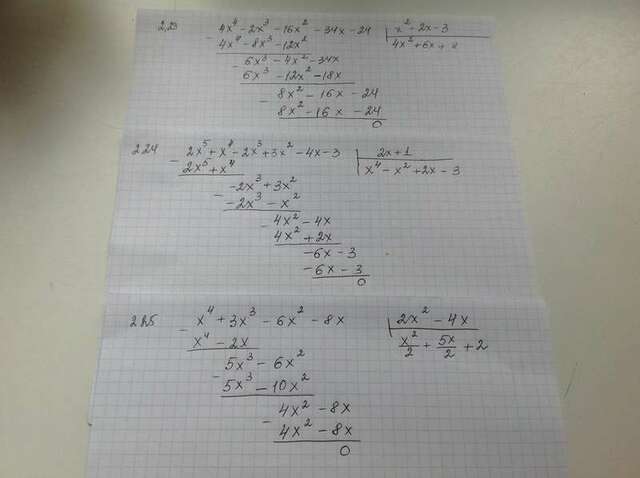 2.23 - 4x⁴ - 2x³ - 16x² - 34x - 24 | x² + 2x - 3
4x⁴ - 8x³ - 12x² | 4x² + 6x + 8
- 6x³ - 4x² - 34x
6x³ - 12x² - 18x
- 8x² - 16x - 24
8x² - 16x - 24
0
2.24 - 2x⁵ + x⁴ - 2x³ + 3x² - 4x - 3 | 2x + 1
2x⁵ + x⁴ | x⁴ - x² + 2x - 3
- -2x³ + 3x²
-2x³ - x²
- 4x² - 4x
4x² + 2x
- -6x - 3
-6x - 3
0
2.25 - x⁴ + 3x³ - 6x² - 8x | 2x² - 4x
x⁴ - 2x | x²/2 + 5x/2 + 2
- 5x³ - 6x²
5x³ - 10x²
- 4x² - 8x
4x² - 8x
0